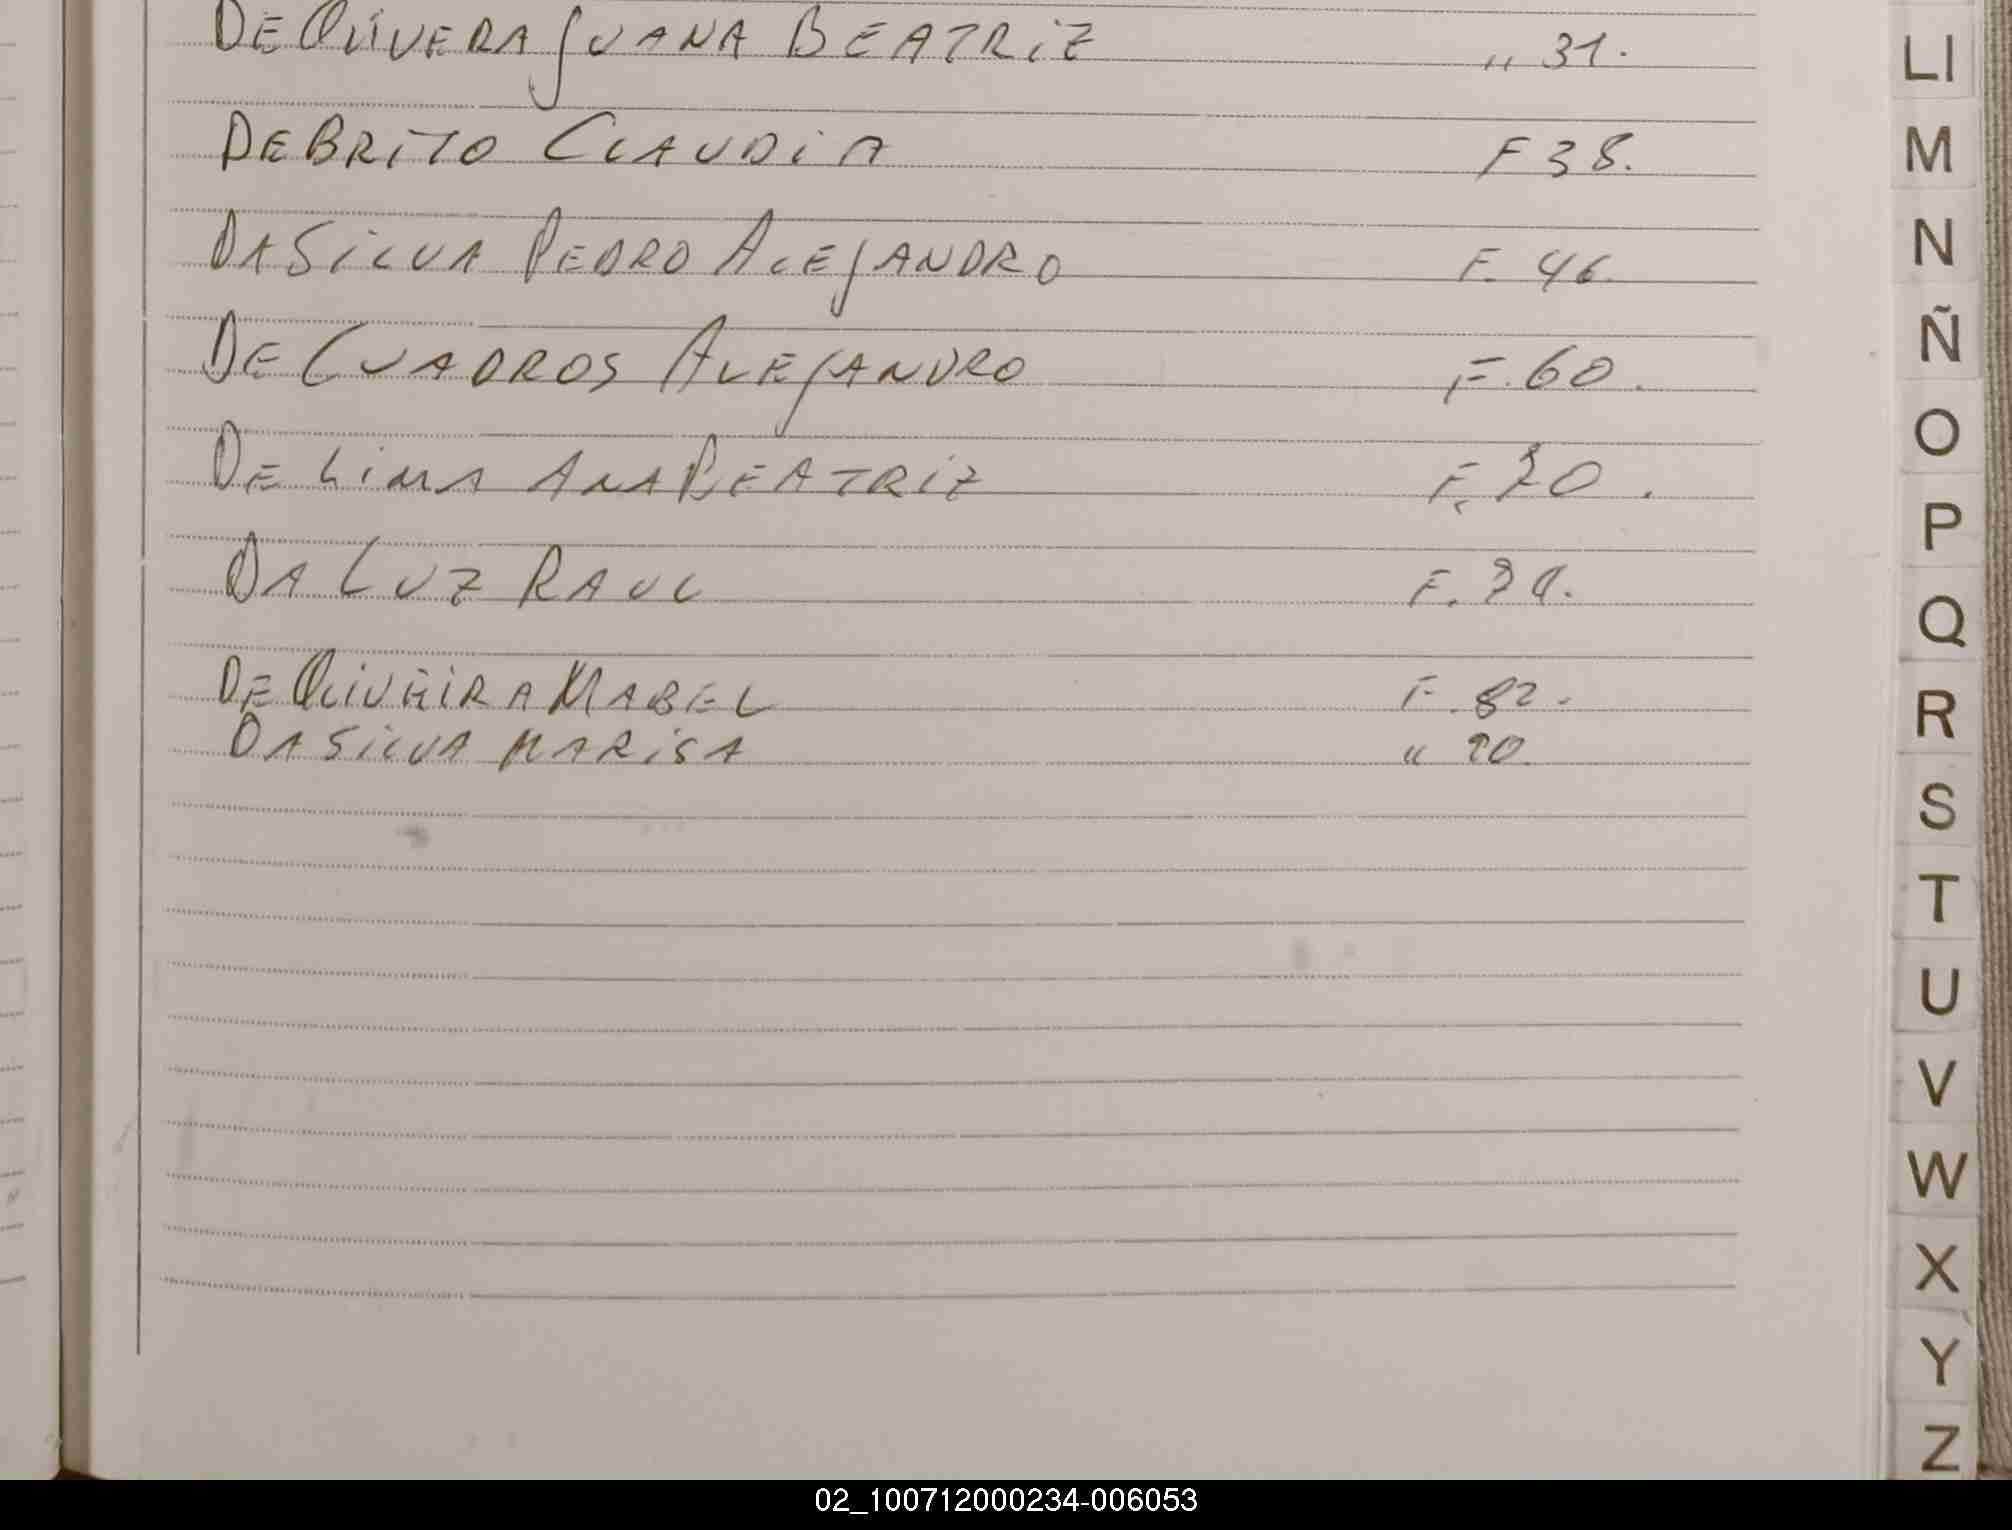 DE OLIVERA JUANA BEATRIZ " 31.
DEBRITO CLAUDIA F 38.
DA SILVA PEDRO ALEJANDRO F. 46.
DE CUADROS ALEJANDRO F. 60.
DE LIMA ANA BEATRIZ F. 70.
DA LUZ RAUL F.
DE OLIVEIRA MABEL F. 82.
DA SILVA MARISA "
LI
M
N
Ñ
O
P
Q
R
S
T
U
V
W
X
Y
Z
02_100712000234-006053